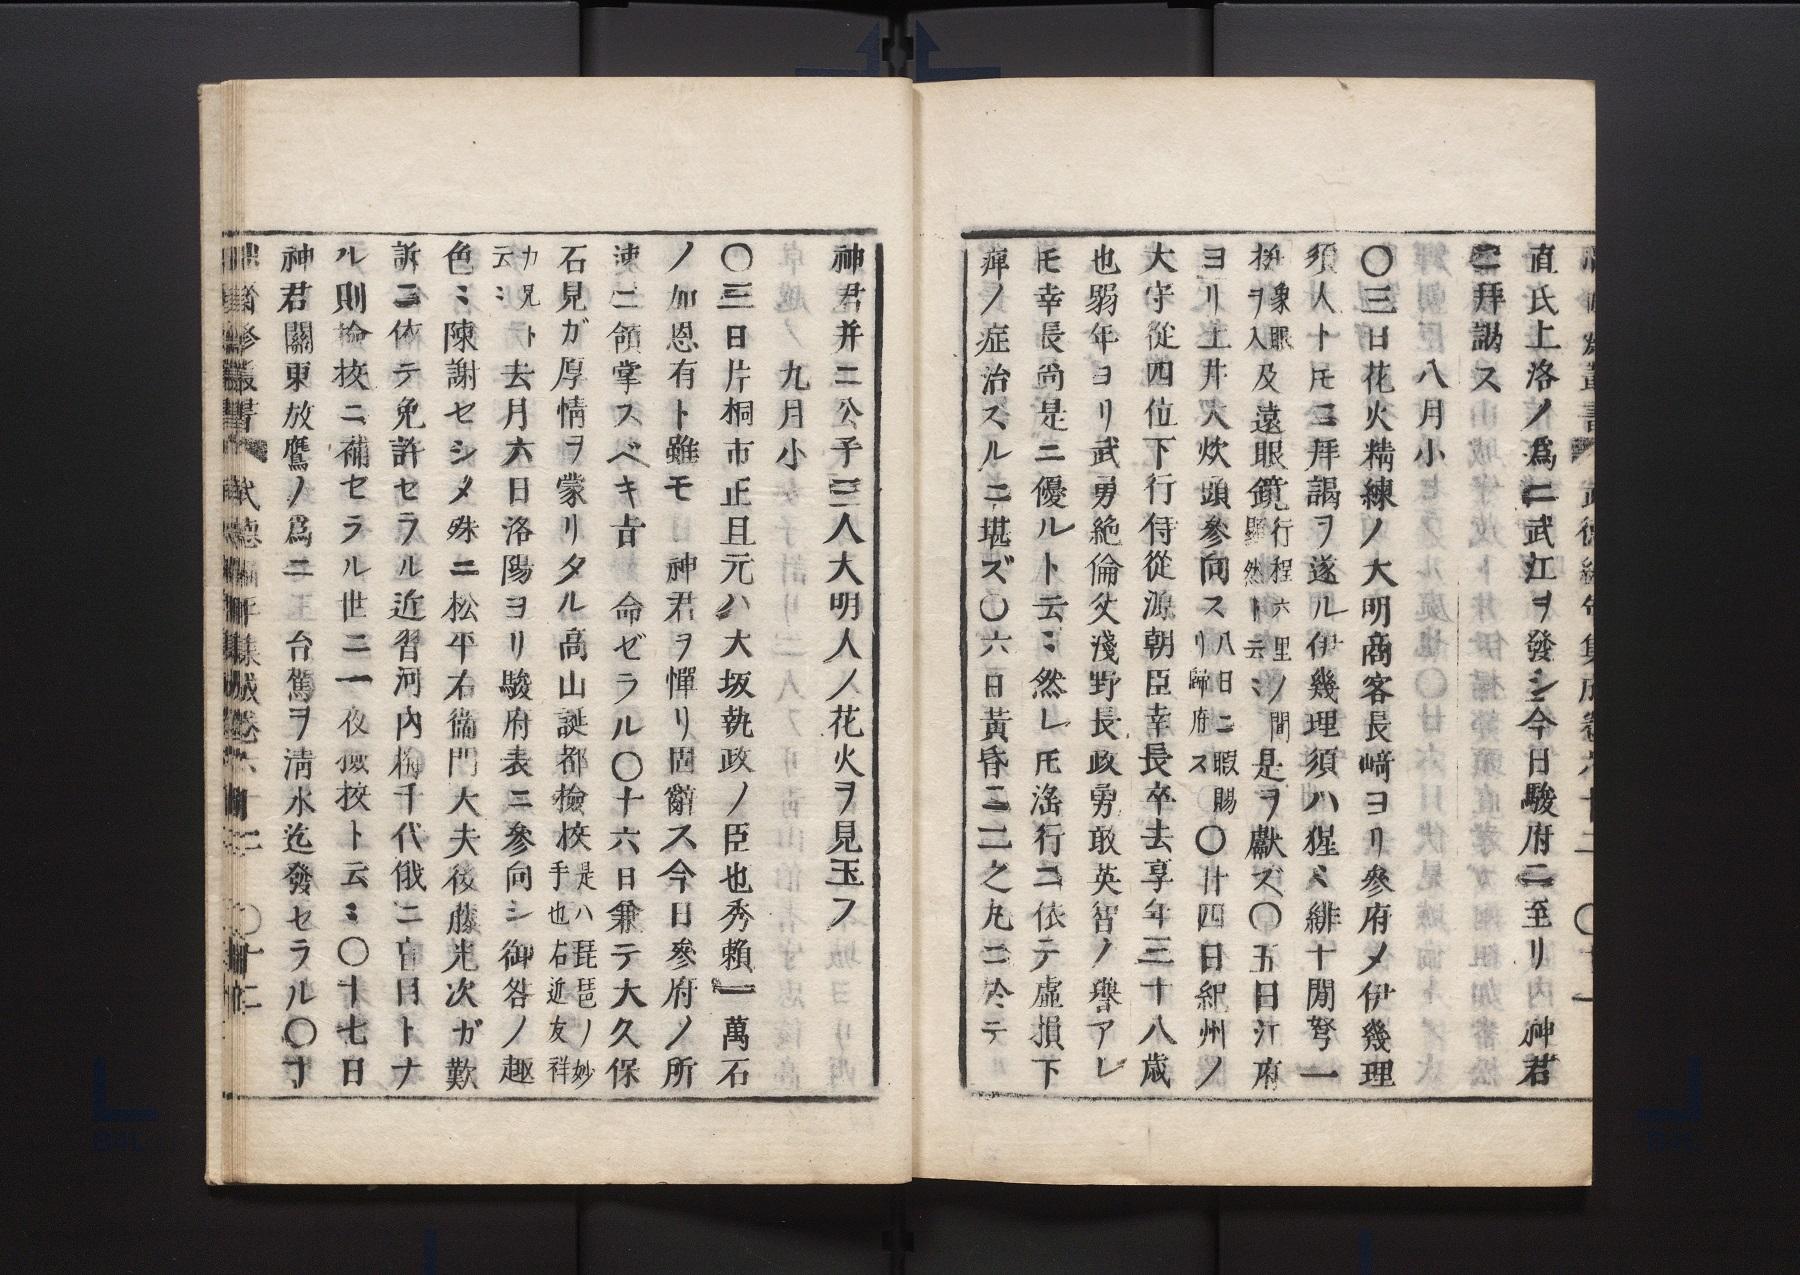 直氏上洛ノ爲ニ武江ヲ發シ今日駿府ニ至リ　神君
ニ拜謁ス
八月小
〇三日花火精練ノ大明商客長﨑ヨリ參府メ伊幾理
須人ト𪜈ニ拜謁ヲ遂ル伊幾理須ハ猩〻緋十間弩一
挺象眼ヲ入及遠眼鏡行程六里ノ間顯然ト云〻是ヲ獻ズ〇五日江府
ヨリ土井大炊頭參向ス八日ニ暇賜リ歸府ス〇廿四日紀州ノ
大守從四位下行侍從源朝臣幸長卒去享年三十八歳
也弱年ヨリ武勇絶倫父淺野長政勇敢英智ノ譽アレ
𪜈幸長尚是ニ優ルト云〻然レ𪜈滛行ニ依テ虛損下
痺ノ症治スルニ堪ズ〇六日黃昏ニ二之丸ニ於テ
神君并ニ公子三人大明人ノ花火ヲ見玉フ
九月小
〇三日片桐市正且元ハ大坂執政ノ臣也秀賴一萬石
ノ加恩有ト雖モ　神君ヲ憚リ固辭ス今日參府ノ所
速ニ領掌スベキ旨　命ゼラル〇十六日兼テ大久保
石見ガ厚情ヲ蒙リタル高山誕都撿校是ハ琵琶ノ妙手也右近友祥
カ兄ト云〻去月六日洛陽ヨリ駿府表ニ參向シ御咎ノ趣
色〻陳謝セシメ殊ニ松平右衞門大夫後藤光次ガ歎
訴ニ依テ免許セラル近習河内梅千代俄ニ盲目トナ
ル則撿校ニ補セラル世ニ一夜撿校ト云〻〇十七日
神君關東放鷹ノ爲ニ　台駕ヲ淸水迄發セラル〇寸